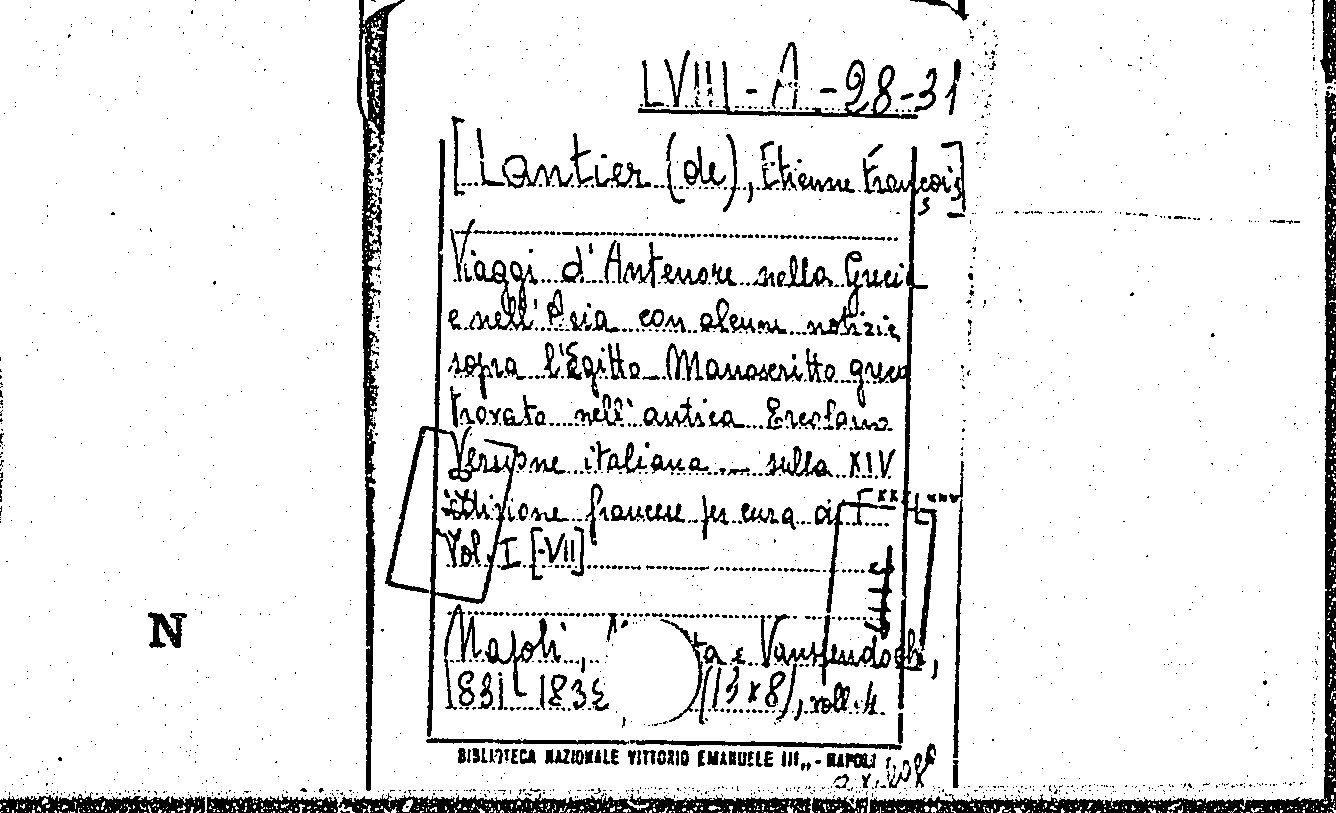 LVIII - A - 28-31
[Lantier (de), Etienne François]
Viaggi d'Antenore nella Grecia
e nell'Asia con alcune notizie
sopra l'Egitto Manoscritto greco
trovato nell'antica Ercolano
Versione italiana _ sulla XIV
edizione francese per cura di
Vol. I [-VII]
N
Napoli, ta e Vanspendoch,
1831-183 (13x8), voll. 4
BIBLIOTECA NAZIONALE VITTORIO EMANUELE III„ - NAPOLI